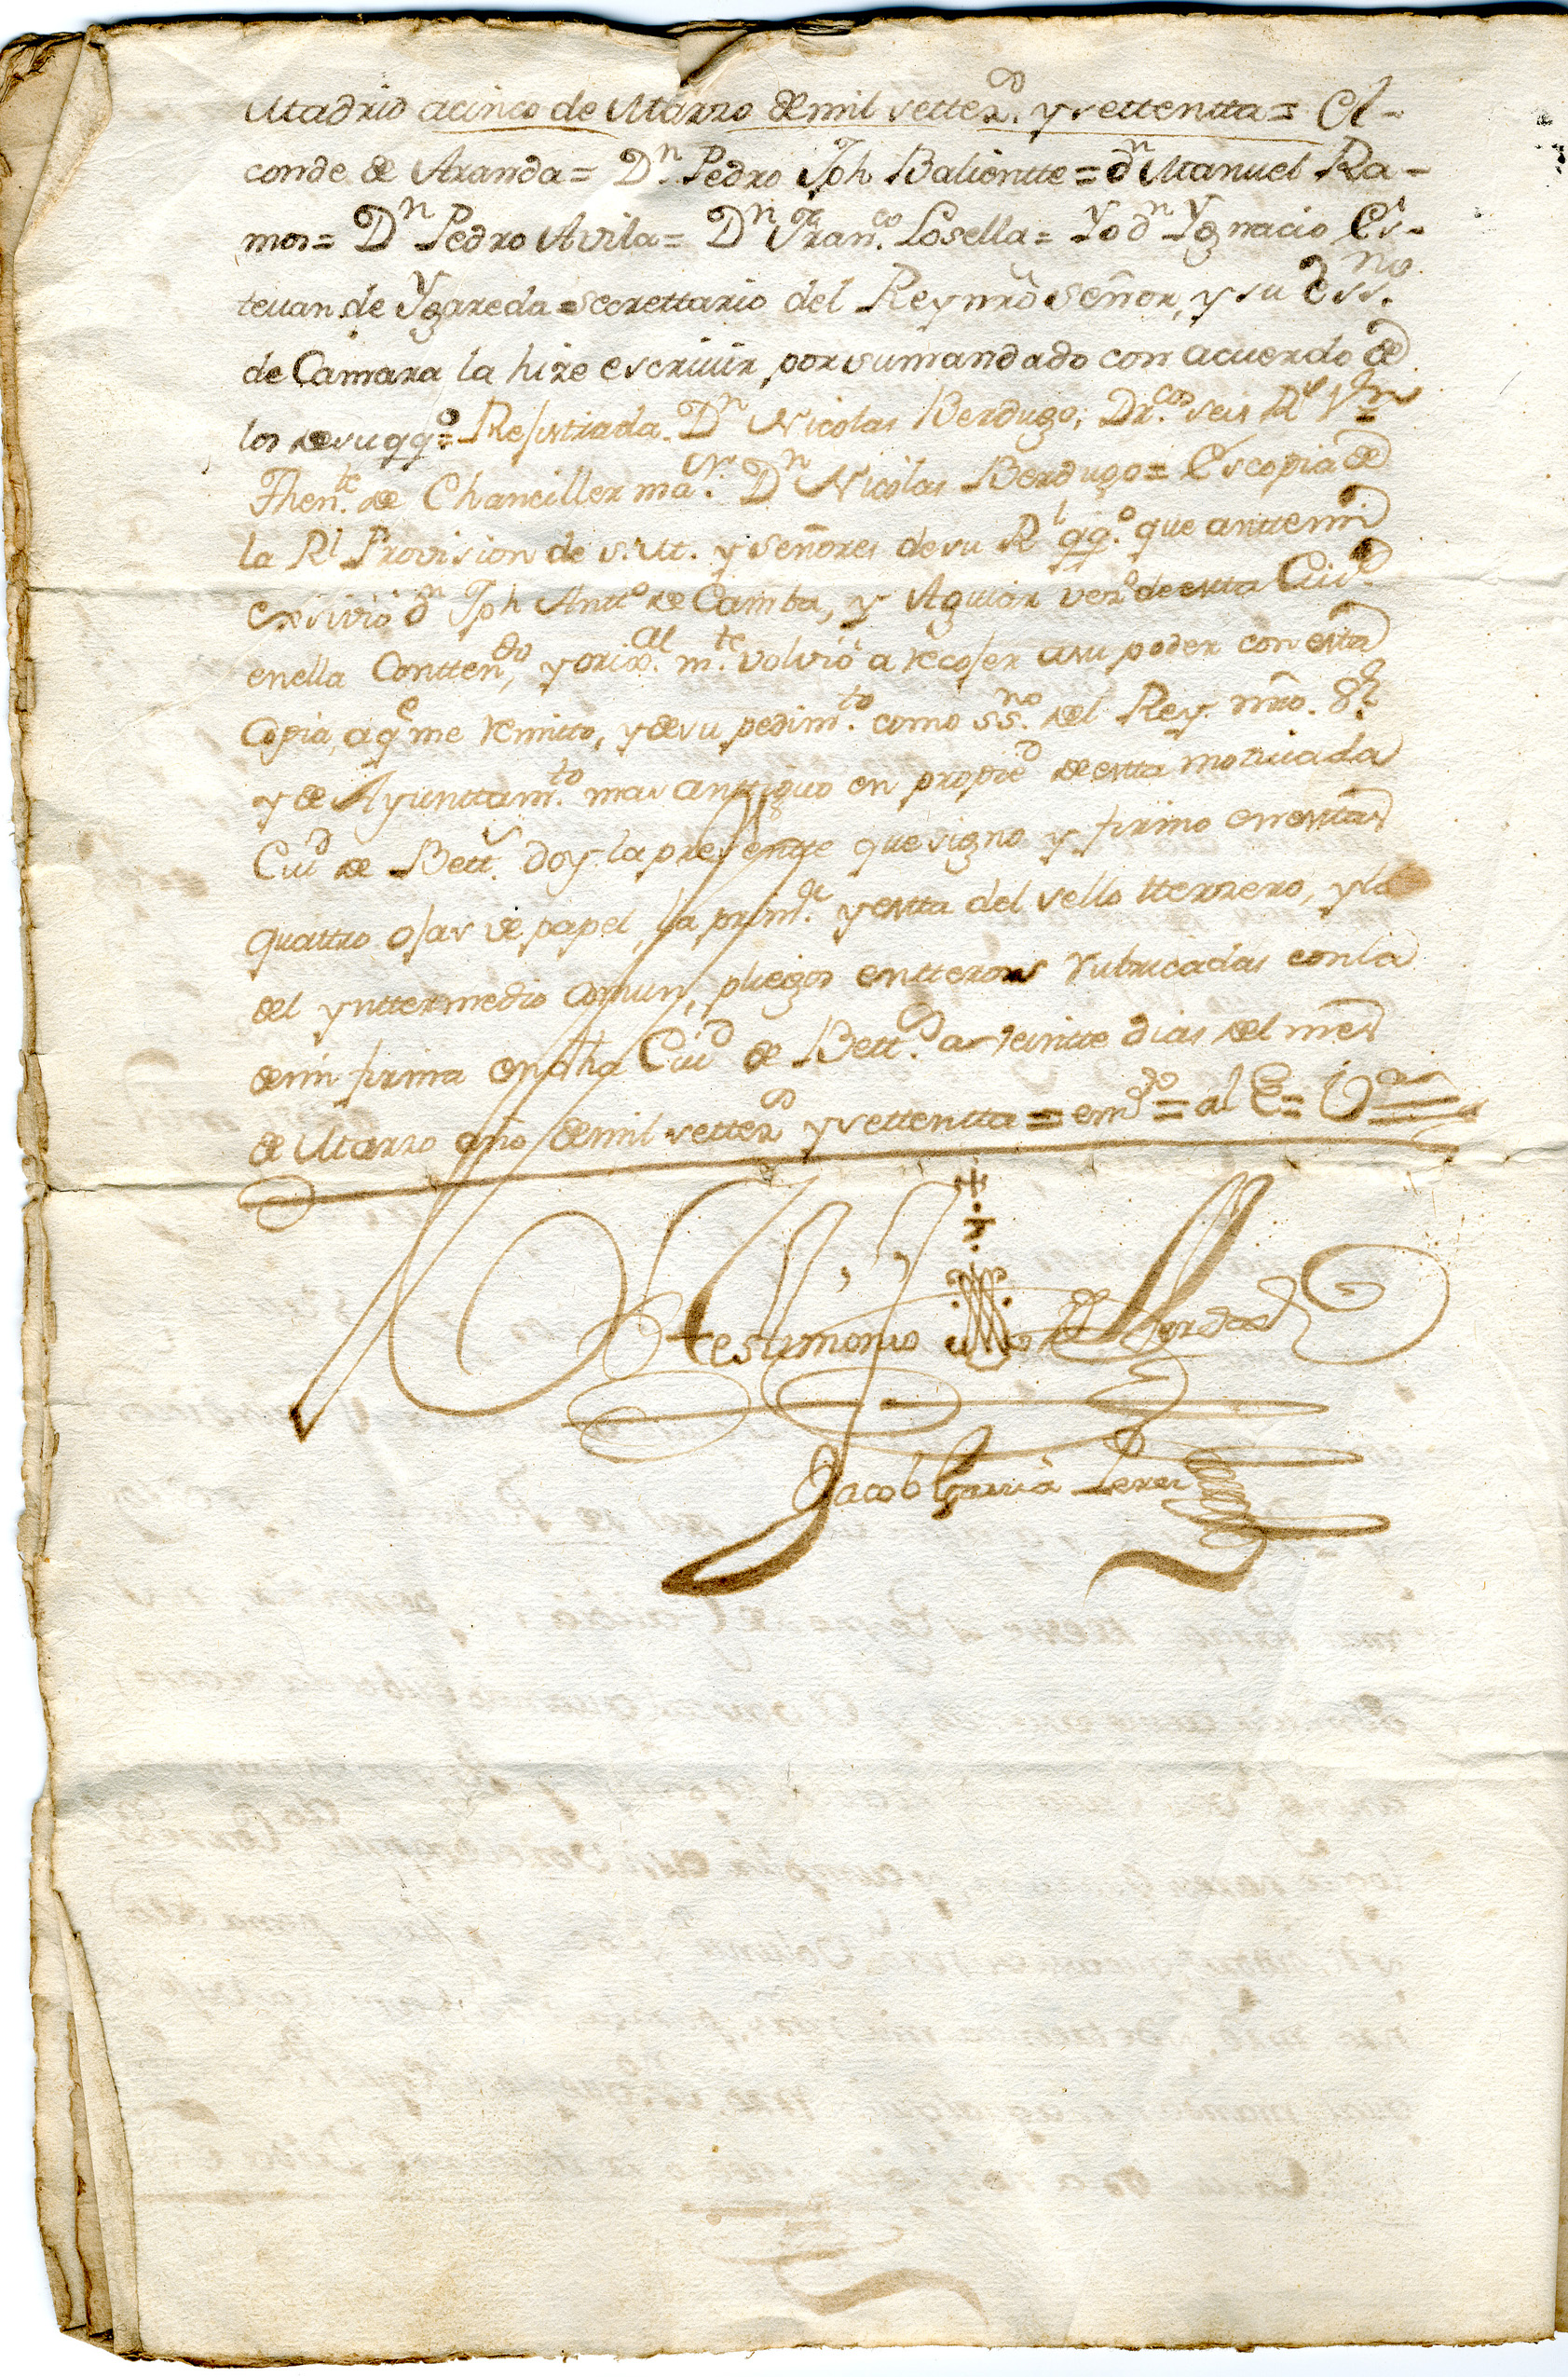 Madrid a cinco de Marzo de mil settezs. y settentta = El-
conde de Aranda = Dn. Pedro Jph Balientte = dn Manuel Ra-
mos = Dn Pedro Avila = Dn Franco. Losella = Yo dn Ygnacio Es-
tevan de Ygareda secrettario del Rey nrô señor, y su Essno.
de Camara la hize escrivir por su mandado con acuerdo de
los de su qqo = Rejistrada. Dn Nicolas Berdugo; Drcos. seis Rs Vn
Thente. de Chanciller maor. Dn Nicolas Berdugo = Es copia de
la Rl Provision de S.M. y señores de su Rl qqo. que antte mi
exsivio dn Jph Antto de Camba, y Aguiar vezo de estta Ciud.
en ella Conttendo, y orixal.mte. volvió a recojer a su poder con estta
Copia, a qe me remitto, y de su pedimto. como ssno. del Rey nrô. Sr
y de Ayunttamto. mas anttiguo en propied de estta motivada
Ciud de Betts. doy la presentte que signo y firmo en esttas
quattro ojas de papel, la primra. y estta del sello tterzero, y lo
del ynttermedio comun, pliegos entteros rubricadas con la
de mi firma en dha Ciud de Betts. a veintte dias del mes
de Marzo año de mil settezs y settentta = emdo = al E = O
testimonio de verdad
Jacob Garcia Perez